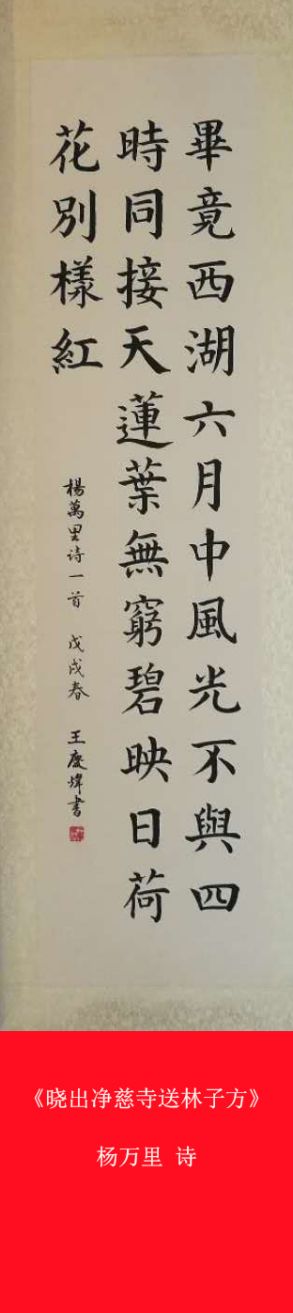 畢竟西湖六月中風光不與四
時同接天蓮葉無窮碧映日荷
花別樣紅
楊萬里诗一首 戊戌春 王慶煒書
《晓出净慈寺送林子方》
杨万里 诗